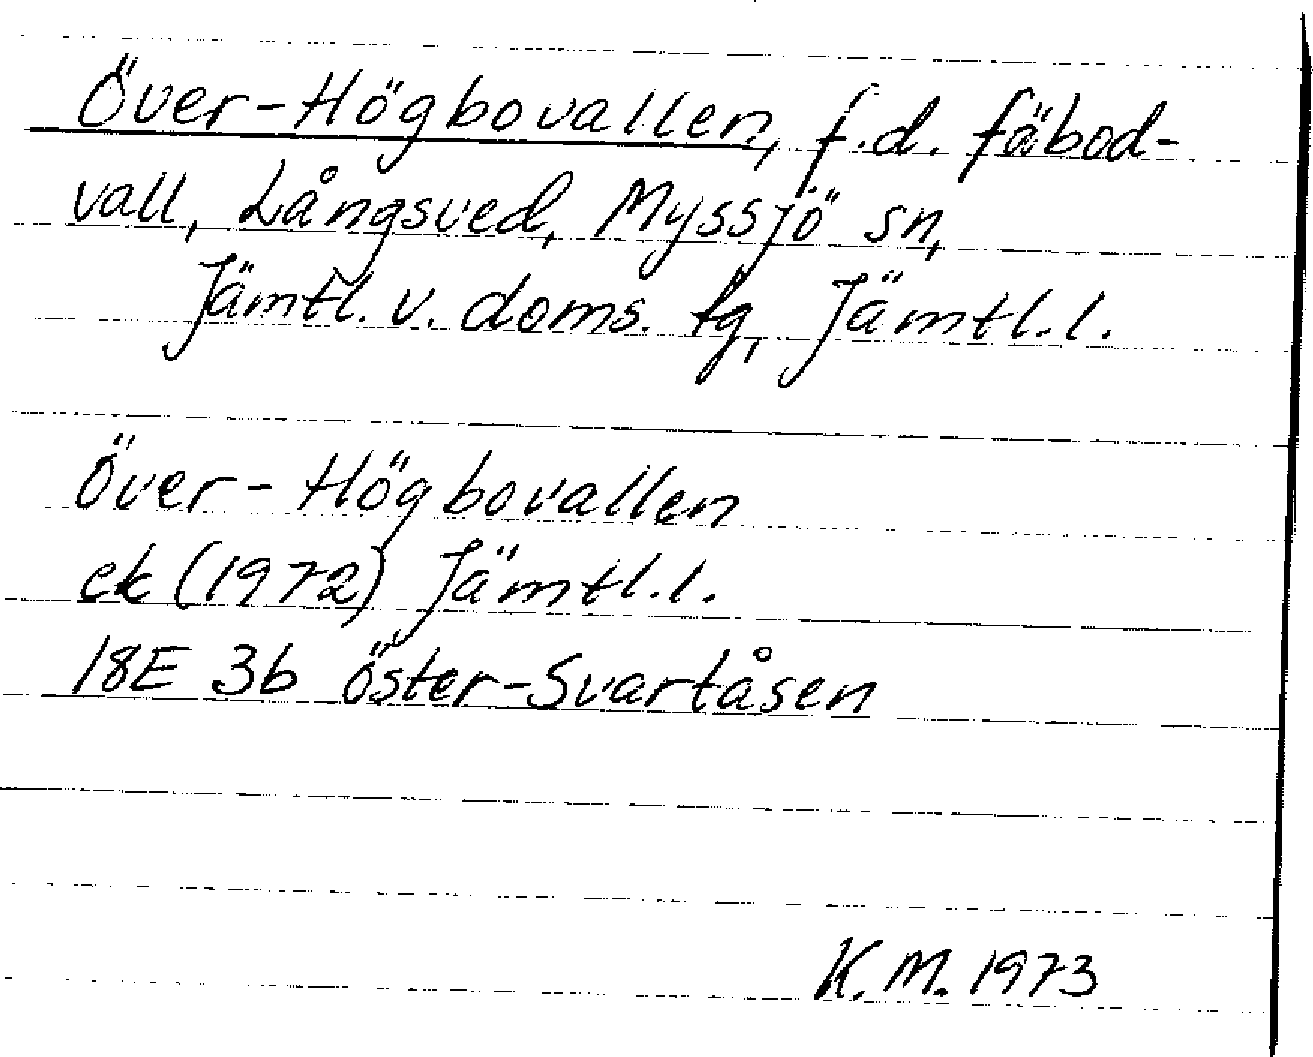 Över-Högbovallen, f.d. fäbod-
vall, Långsved, Myssjö sn,
Jämtl. v. doms. tg, Jämtl. l.
Över-Högbovallen
ek (1972) Jämtl. l.
18E 3b Öster-Svartåsen
K. M. 1973